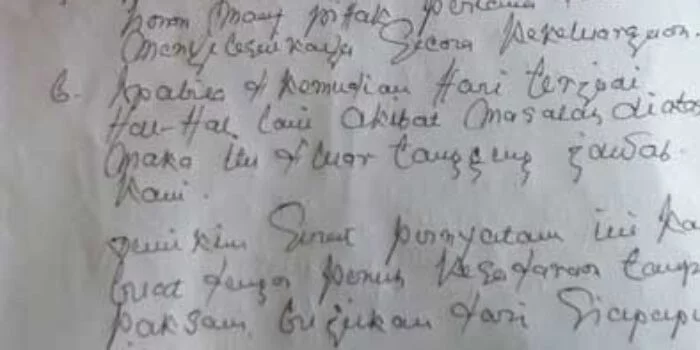 kami mau pihak pertama
menyelesaikanya secara kekeluargaan.
6. Apabila di kemudian Hari terjadi
Hal-Hal lain akibat masalah diata
maka itu di luar tanggung jawab
kami.
Demikian Surat pernyataan ini ka
buat dengan penuh kesadaran tanp
paksaan bujukan dari siapapu